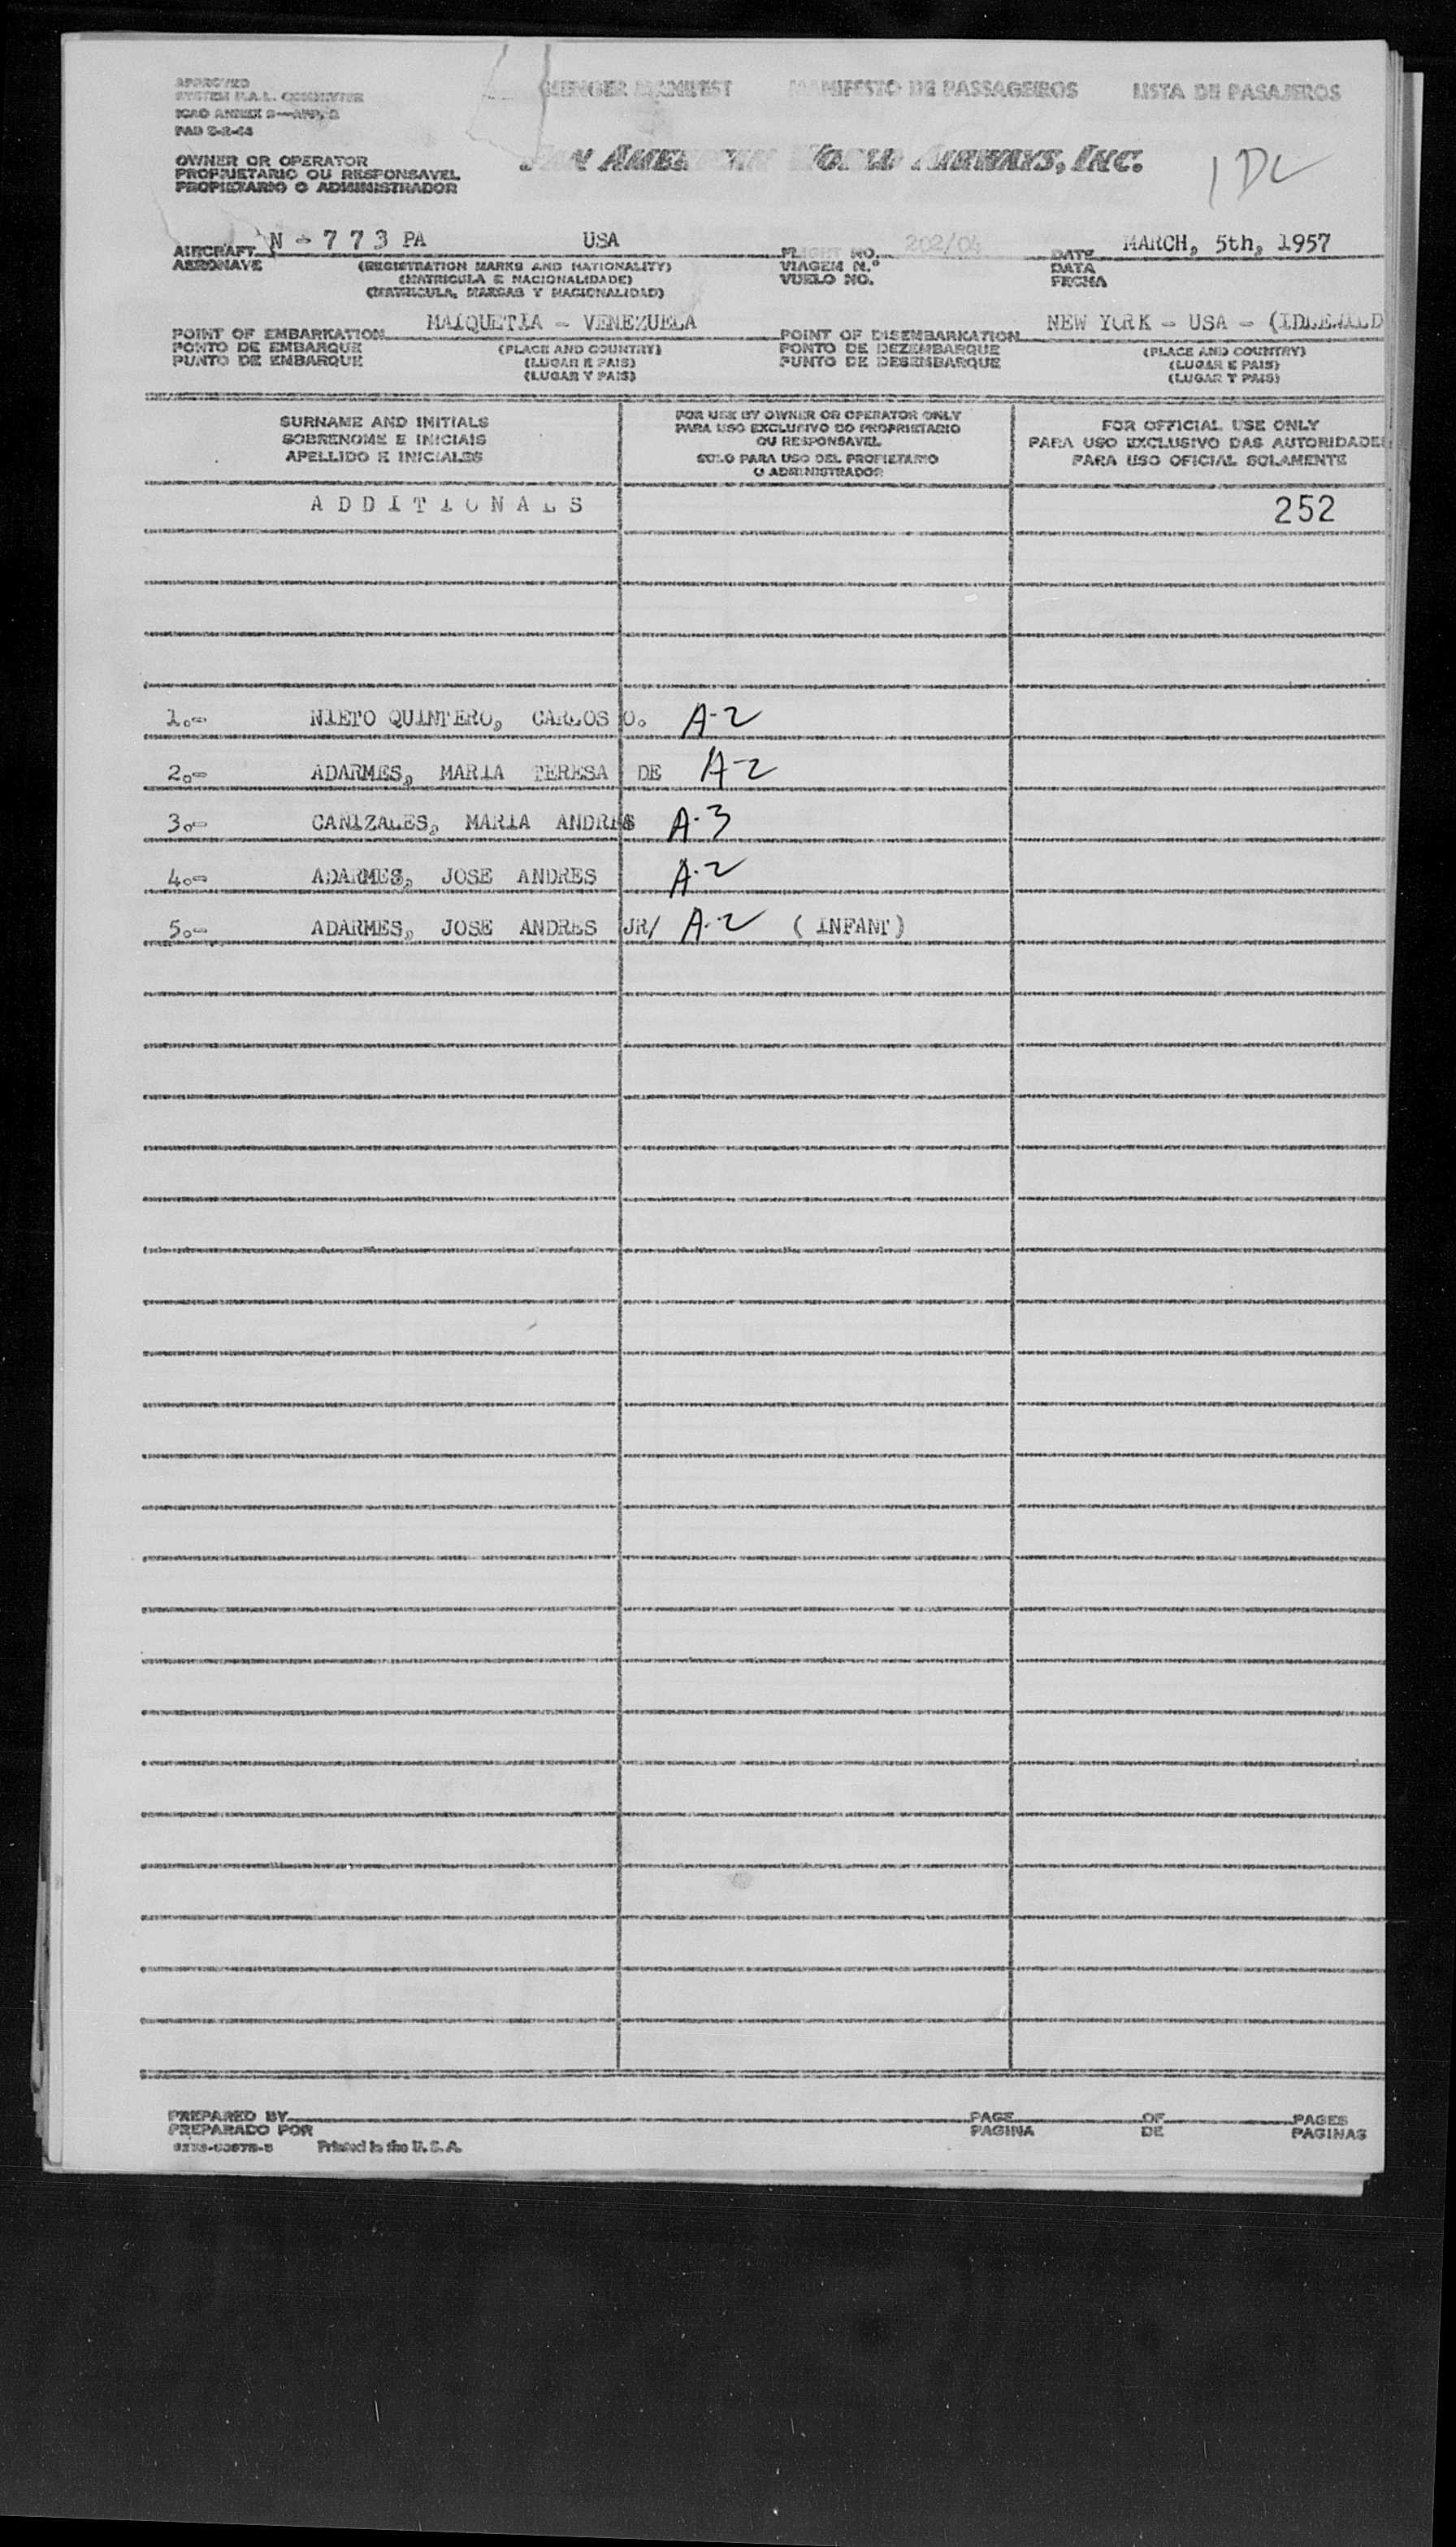 APPROVED
SYSTEM F.A.L. COMMITTEE
ICAO ANNEX 9—APP. 2
PAD 2-2-44
MANIFEST MANIFESTO DE PASSAGEIROS LISTA DE PASAJEROS
OWNER OR OPERATOR
PROPRIETARIO OU RESPONSAVEL
PROPIETARIO O ADMINISTRADOR
PAN AMERICAN WORLD AIRWAYS, INC.
AIRCRAFT N - 7 7 3 PA USA FLIGHT NO. 202/04 DATE MARCH, 5th, 1957
AERONAVE (REGISTRATION MARKS AND NATIONALITY) VIAGEM N.º DATA
(MATRICULA E NACIONALIDADE) VUELO NO. FECHA
(MATRICULA, MARCAS Y NACIONALIDAD)
POINT OF EMBARKATION MAIQUETIA - VENEZUELA POINT OF DISEMBARKATION NEW YORK - USA - (IDLEWILD
PONTO DE EMBARQUE (PLACE AND COUNTRY) PONTO DE DEZEMBARQUE (PLACE AND COUNTRY)
PUNTO DE EMBARQUE (LUGAR E PAIS) PUNTO DE DESEMBARQUE (LUGAR E PAIS)
(LUGAR Y PAIS) (LUGAR Y PAIS)
SURNAME AND INITIALS
SOBRENOME E INICIAIS
APELLIDO E INICIALES
FOR USE BY OWNER OR OPERATOR ONLY
PARA USO EXCLUSIVO DO PROPRIETARIO
OU RESPONSAVEL
SOLO PARA USO DEL PROPIETARIO
O ADMINISTRADOR
FOR OFFICIAL USE ONLY
PARA USO EXCLUSIVO DAS AUTORIDADES
PARA USO OFICIAL SOLAMENTE
A D D I T I O N A L S 252
1.- NIETO QUINTERO, CARLOS O. A-2
2.- ADARMES, MARIA TERESA DE A-2
3.- CANIZALES, MARIA ANDRES A-3
4.- ADARMES, JOSE ANDRES A-2
5.- ADARMES, JOSE ANDRES JR/ A-2 ( INFANT)
PREPARED BY PAGE OF PAGES
PREPARADO POR PAGINA DE PAGINAS
Printed in the U.S.A.